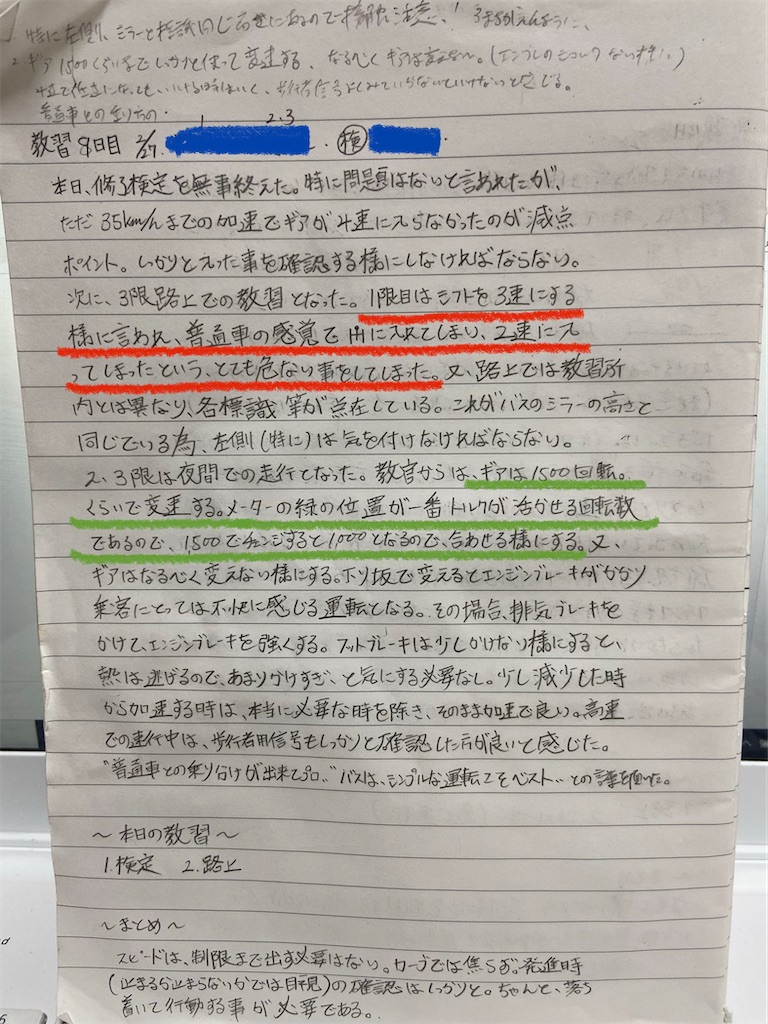 1. 特に左側、ミラーと標識同じ高さにあるので接触注意！
2. ギア1500くらいまでしっかりと使って変速する、なるべくギアは変えない。(エンブレのショックないオオい)
歩行者信号よくみていらないといけないと感じる。
普通車との乗り分け
1 2.3
教習8日目 2/27. 検
本日、修了検定を無事終えた。特に問題はないと言われたが、
ただ 35km/hまでの加速でギアが4速に入らなかったのが減点
ポイント。しっかりと入った事を確認する様にしなければならない。
次に、3限路上での教習となった。1限目はシフトを3速にする
様に言われ、普通車の感覚で 入れてしまい、2速に入
ってしまったという、とても危ない事をしてしまった。又、路上では教習所
内とは異なり、各標識等が点在している。これがバスのミラーの高さと
同じている為、左側(特に)は気を付けなければならない。
2、3限は夜間での走行となった。教官からは、ギアは1500回転。
くらいで変速する。メーターの緑の位置が一番トルクが活かせる回転数
であるので、1,500でチェンジすると1,000となるので、合わせる様にする。又、
ギアはなるべく変えない様にする。下り坂で変えるとエンジンブレーキがかかり
乗客にとっては不快に感じる運転となる。その場合、排気ブレーキを
かけて、エンジンブレーキを強くする。フットブレーキは少しかけない様にすると、
熱は逃げるので、あまりかけすぎ、と気にする必要なし。少し減少した時
から加速する時は、本当に必要な時を除き、そのまま加速で良い。高速
での運行中は、歩行者用信号もしっかりと確認した方が良いと感じた。
"普通車との乗り分けが出来てプロ‥" バスは、シンプルな運転こそベスト‥ との言葉を頂いた。
～本日の教習～
1.検定 2.路上
～まとめ～
スピードは、制限まで出す必要はない。カーブでは焦らず。発進時
(止まるか止まらないかでは目視)の確認はしっかりと。ちゃんと、落ち
着いて行動する事が必要である。